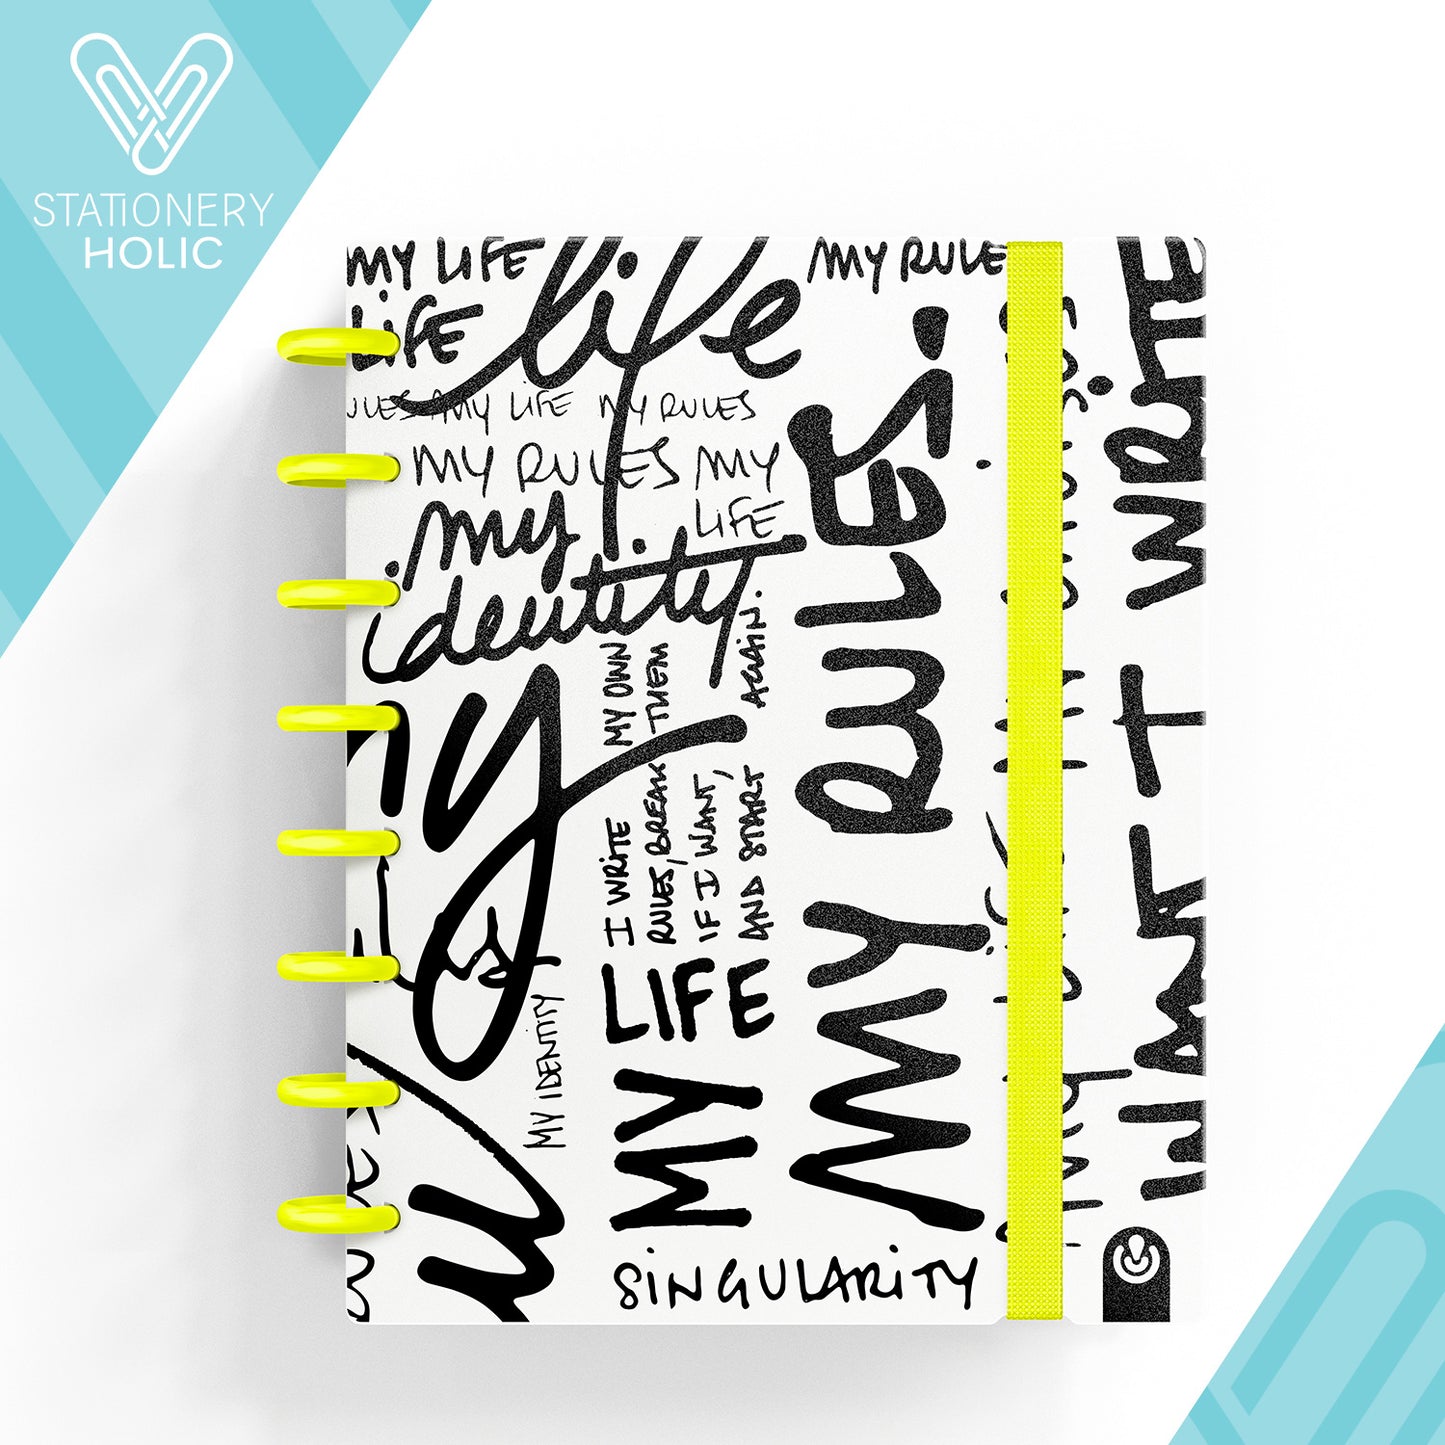 STATIONERY
HOLIC
MY LIFE
life
MY RULE
LIFE
ULES MY LIFE MY RULES
MY RULES MY
LIFE
my
identity
my
I WRITE MY OWN
RULES, BREAK THEM
IF I WANT,
AND START AGAIN.
MY LIFE
MY RULES.
MY IDENTITY
SINGULARITY
I WRITE